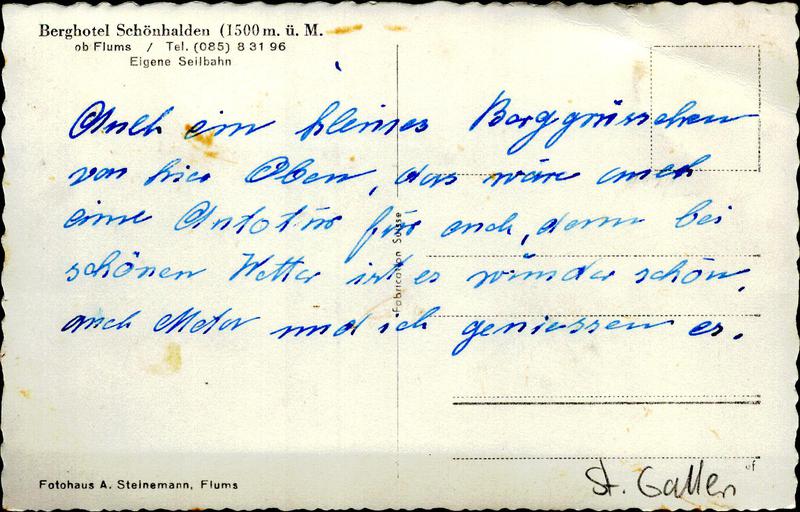 Berghotel Schönhalden (1500 m. ü. M.
ob Flums / Tel. (085) 8 31 96
Eigene Seilbahn
Auch ein kleines Berggrüsschen
von hier Oben, das wäre auch
eine Autotür für euch, denn bei
schönen Wetter ist es wunder schön,
auch Metav und ich geniessen es.
Fabrication Suisse
Fotohaus A. Steinemann, Flums
St. Gallen